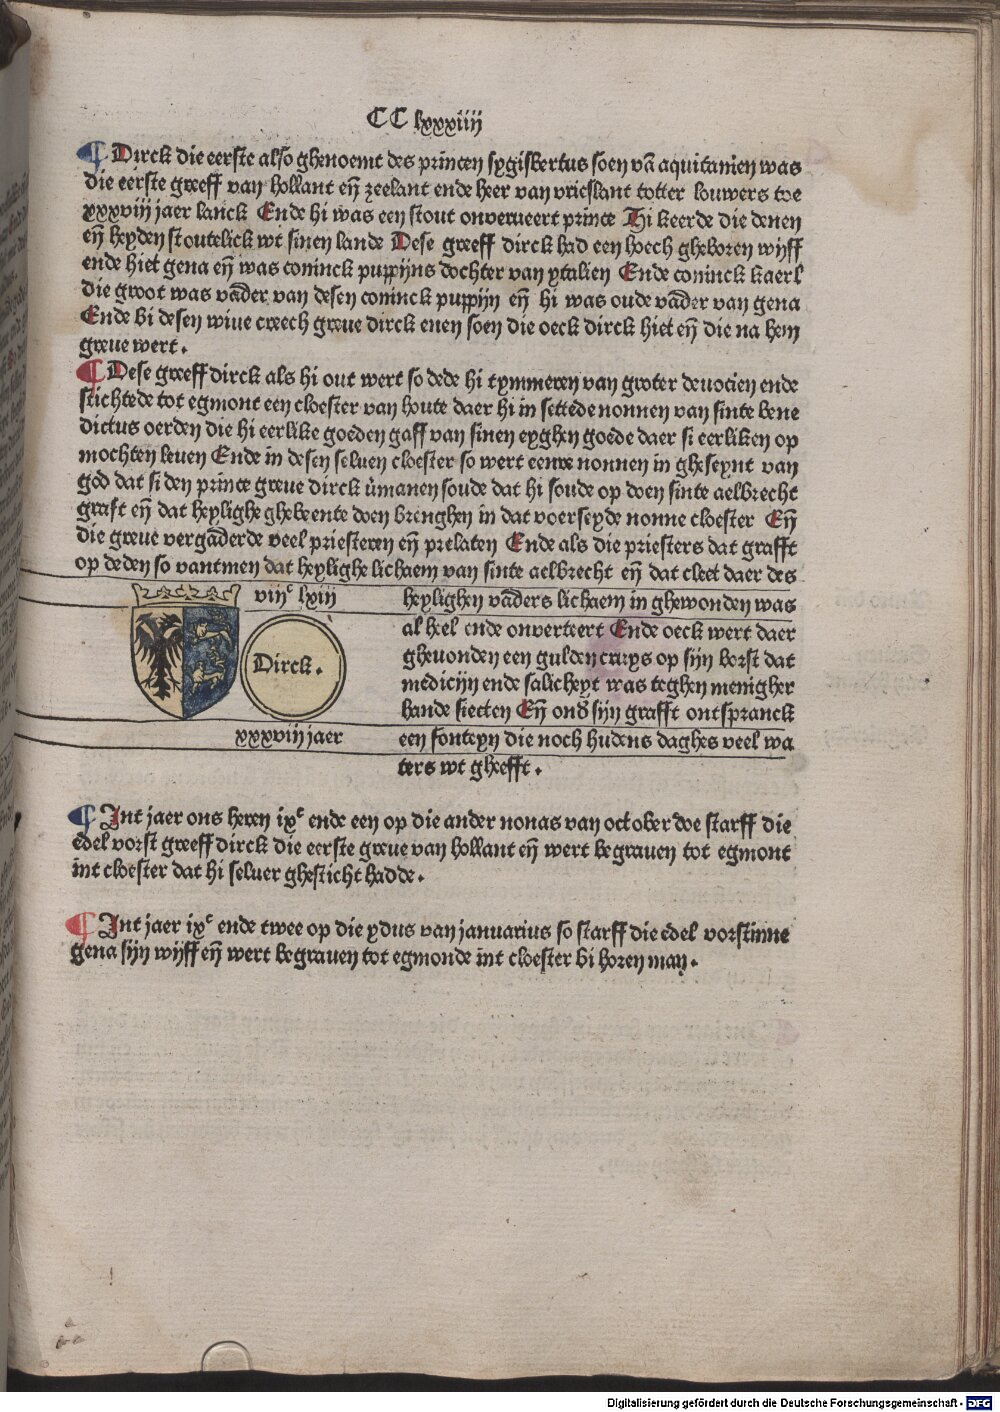 CC lxxxiiij
¶ Dirck die eerste also ghenoemt des princen sygisbertus soen vā aquitanien was
die eerste greeff van hollant eñ zeelant ende heer van vrieslant totter louwers toe
xxxviij jaer lanck Ende hi was een stout onverueert prince Hi keerde die denen
eñ heyden stoutelick wt sinen lande Dese greeff dirck had een hoech gheboren wijff
ende hiet gena eñ was coninck puppijns dochter van ytalien Ende coninck kaerl
die groot was vāder van desen coninck puppijn eñ hi was oude vāder van gena
Ende bi desen wiue creech greue dirck enen soen die oeck dirck hiet eñ die na hem
greue wert.
¶ Dese greeff dirck als hi out wert so dede hi tymmeren van groter deuocien ende
stichtede tot egmont een cloester van houte daer hi in settede nonnen van sinte bene
dictus oerden die hi eerlike goeden gaff van sinen eyghen goede daer si eerliken op
mochten leuen Ende in desen seluen cloester so wert eenre nonnen in gheseynt van
god dat si den prince greue dirck v̄manen soude dat hi soude op doen sinte aelbrecht
graft eñ dat heylighe ghebeente doen brenghen in dat voerseyde nonne cloester Eñ
die greue vergāderde veel priesteren eñ prelaten Ende als die priesters dat grafft
op deden so vantmen dat heylighe lichaem van sinte aelbrecht eñ dat cleet daer des
viijᶜ lxiij
heylighen vāders lichaem in ghewonden was
al heel ende onverteert Ende oeck wert daer
Dirck.
gheuonden een gulden cruys op sijn borst dat
medicijn ende salicheyt was teghen menigher
hande siecten Eñ ond̄ sijn grafft ontspranck
xxxviij jaer
een fonteyn die noch hudens daghes veel wa
ters wt gheefft.
¶ Int jaer ons heren ixᶜ ende een op die ander nonas van october doe starff die
edel vorst greeff dirck die eerste greue van hollant eñ wert begrauen tot egmont
int cloester dat hi seluer ghesticht hadde.
¶ Int jaer ixᶜ ende twee op die ydus van januarius so starff die edel vorstinne
gena sijn wijff eñ wert begrauen tot egmonde int cloester bi horen man.
Digitalisierung gefördert durch die Deutsche Forschungsgemeinschaft - DFG